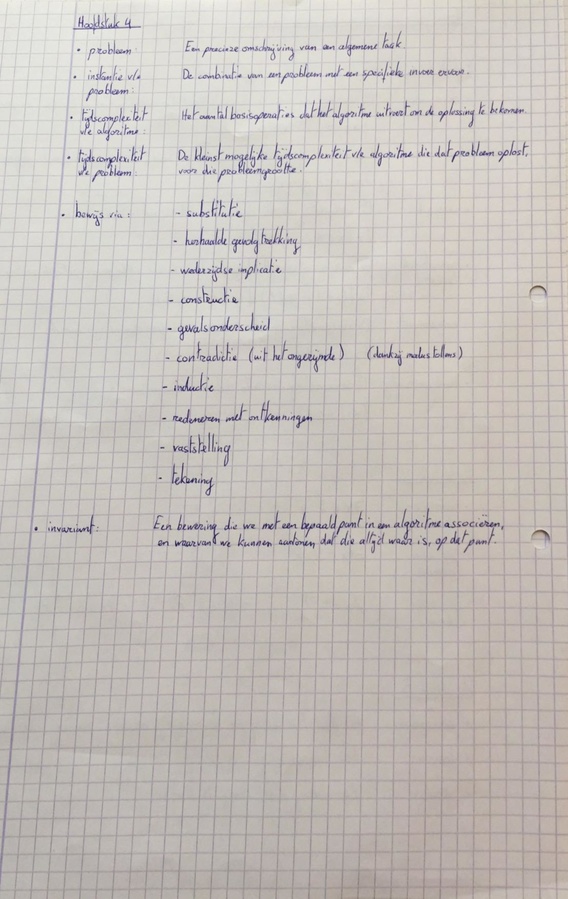 Hoofdstuk 4
• probleem: Een precieze omschrijving van een algemene taak.
• instantie v/e De combinatie van een probleem met een specifieke invoer ervoor.
probleem:
• tijdscomplexiteit Het aantal basisoperaties dat het algoritme uitvoert om de oplossing te bekomen.
v/e algoritme:
• tijdscomplexiteit De kleinst mogelijke tijdscomplexiteit v/e algoritme die dat probleem oplost,
v/e probleem: voor die probleemgrootte.
• bewijs via: - substitutie
- herhaalde gevolgtrekking
- wederzijdse implicatie
- constructie
- gevalsonderscheid
- contradictie (uit het ongerijmde) (dankzij modus tollens)
- inductie
- redeneren met ontkenningen
- vaststelling
- tekening
• invariant: Een bewering die we met een bepaald punt in een algoritme associëren,
en waarvan we kunnen aantonen, dat die altijd waar is, op dat punt.